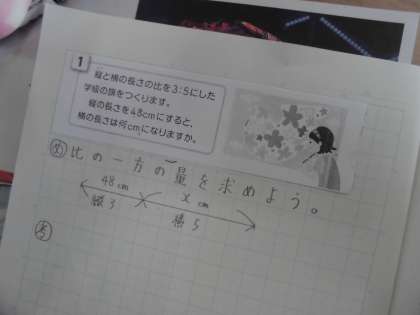 1
縦と横の長さの比を3:5にした
学級の旗をつくります。
縦の長さを48cmにすると、
横の長さは何cmになりますか。
め 比の一方の量を求めよう。
48cm x cm
縦3 横5
考